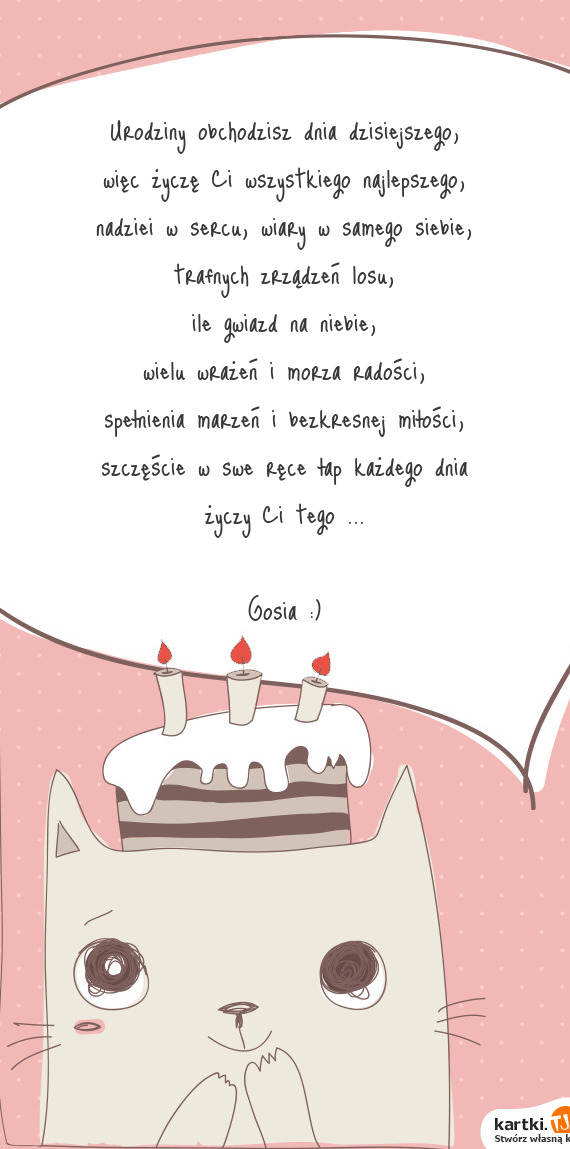 Urodziny obchodzisz dnia dzisiejszego,
więc życzę Ci wszystkiego najlepszego,
nadziei w sercu, wiary w samego siebie,
trafnych zrządzeń losu,
ile gwiazd na niebie,
wielu wrażeń i morza radości,
spełnienia marzeń i bezkresnej miłości,
szczęście w swe ręce łap każdego dnia
życzy Ci tego ...
Gosia :)
kartki.TJ
Stwórz własną k